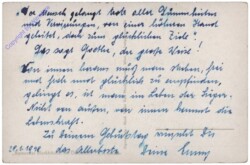 Der Mensch gelangt trotz aller Dummheiten
und Verirrungen, von einer höheren Hand
geleitet, doch zum glücklichen Ziele!
Das sagt Goethe, der große Weise!
Von innen heraus muß man streben, frei
und sich glücklich zu empfinden,
gelingt es, ist man im Leben der Sieger.
Nicht von außen, von innen kommt die
Lebenskraft.
Zu Deinem Geburtstag wünscht Dir
das Allerbeste Deine Emmy